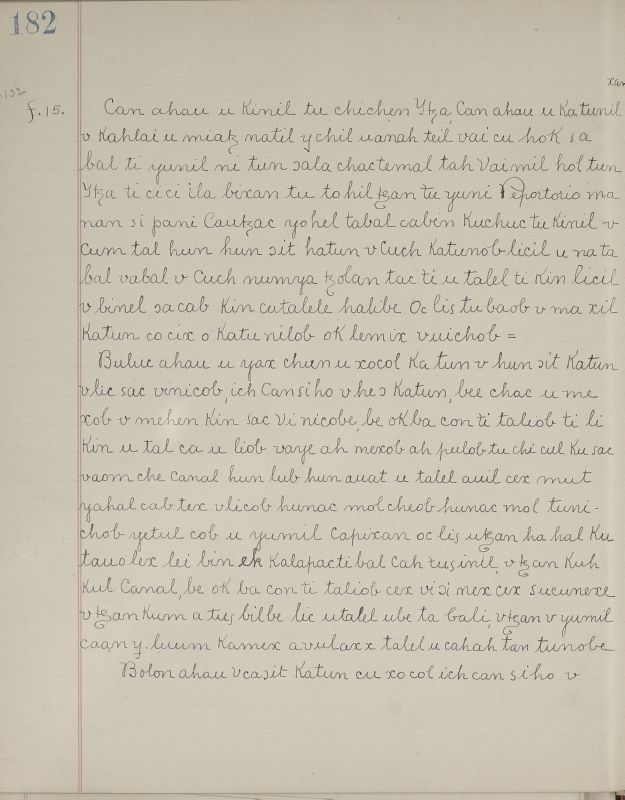 182
xan
132
f. 15. Can ahau u Kinil tu chichen Ytza, Can ahau u Katunil
v Kahlai u miatz natil ychil uanah teil vai cu hok sa
bal ti yunil ni tun ɔala chactemal tah Vaimil hol tun
Ytza ti ci ci ila bixan tu to hil tzan tu yuni Reportorio ma
nan si pani Cautzac yohel tabal cabin Kuchuc tu Kinil v
cum tal hun hun ɔit hatun v Cuch Katunob licil u na ta
bal vabal v Cuch numya tzolan tac ti u talel ti Kin licil
v binel ɔa cab Kin cutalele halibe Oc lis tu baob v ma xil
Katun co cix o Katu nilob ok lemix vuichob =
Buluc ahau u yax chun u xocol Ka tun v hun ɔit Katun
vlic sac vinicob, ich Cansiho v heɔ Katun, bee chac u me
xob v mehen Kin sac Vi nicobe, be ok ba con ti taliob ti li
Kin u tal ca u liob vaye ah mexob ah pulob tu chi cul Ku sac
vaom che Canal hun lub hun auat u talel auil cex mut
yahal cab tex vlicob hunac mol cheob hunac mol tuni-
chob yetul cob u yumil Capixan oc lis utzan ha hal Ku
tauo lex lei bin ek Kalapacti bal Cah tusinil, v tzan Kuh
Kul Canal, be ok ba con ti taliob cex vi ɔi nex cex sucunexe
v tzan Kum a tus bilbe lic utalel ube ta bali, vtzan v yumil
caan y. luum Kamex avulaxx talel u cahah tan tunobe
Bolon ahau Vcaɔit Katun cu xo col ich can siho v